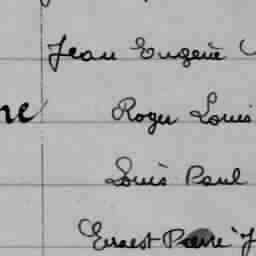 Jean Eugène
ne Roger Louis
Louis Paul
Ernest Pierre J